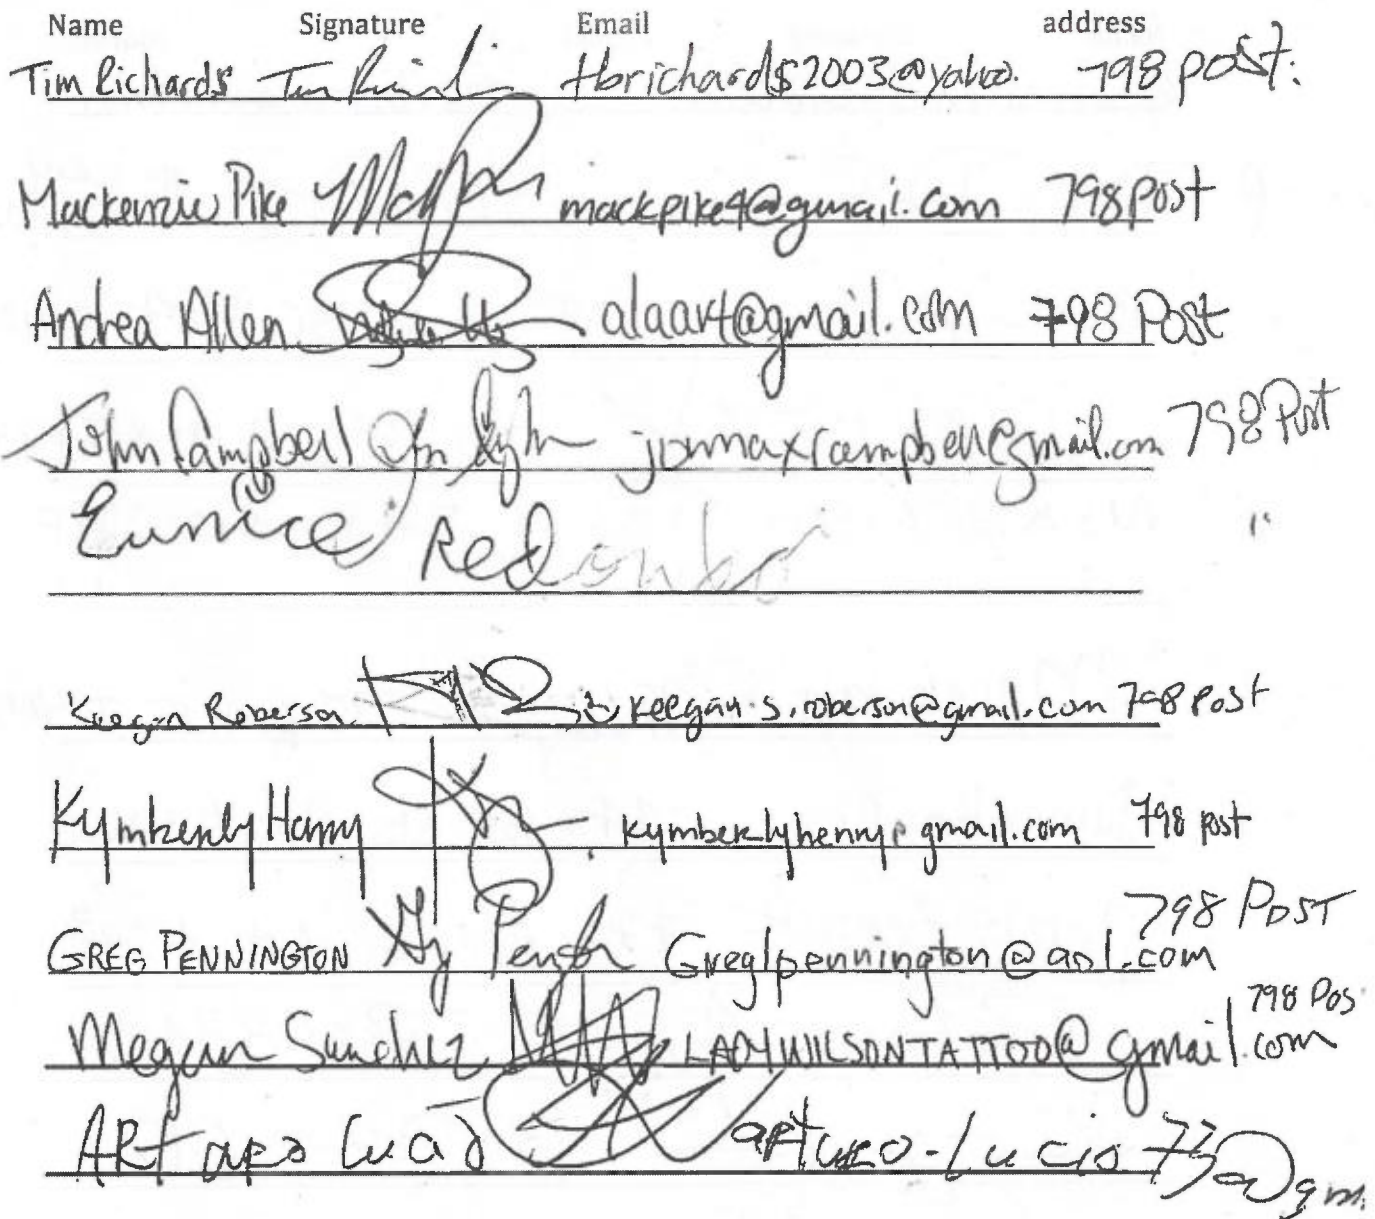 Name Signature Email address
Tim Richards Tim tbrichards2003@yahoo. 798 post.
Mackenzie Pike mackpike4@gmail.com 798 post
Andrea Allen alaart@gmail.com 798 Post
John Campbell jonmaxcampbell@gmail.com 798 Post
Eunice Redondo "
Keegan Roberson keegan.s.roberson@gmail.com 798 Post
Kymberly Henry kymberlyhenry@gmail.com 798 post
GREG PENNINGTON Greglpennington@aol.com 798 POST
Megan Sanchez LADYWILSONTATTOO@gmail.com 798 Pos
ARturo Lucio arturo-Lucio77@gm.